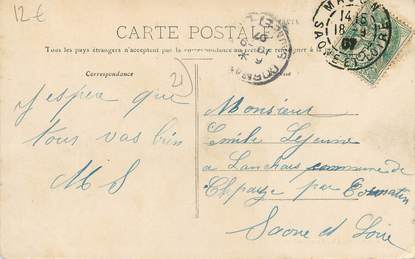 12€
CARTE POSTALE
Tous les pays étrangers n'acceptent pas la correspondance au
Correspondance
21
J'espère que
tous vas bien
M S
Monsieur
Emile Lejeune
a Lanchais commune de
Chpaize par Cormatin
Saone et Loire